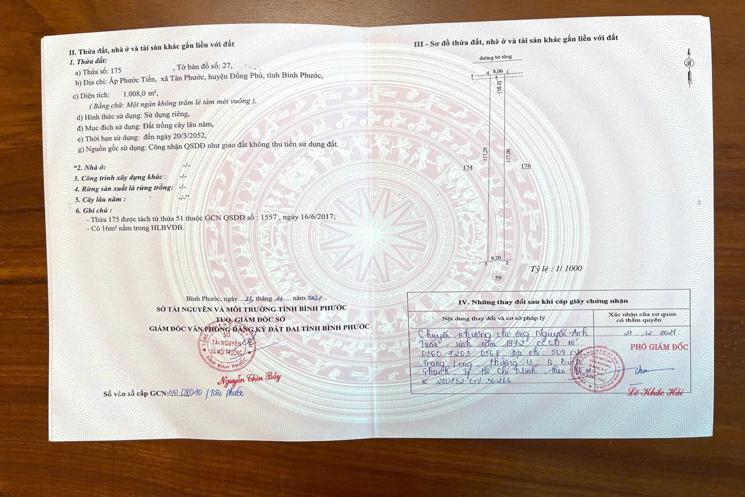 II. Thửa đất, nhà ở và tài sản khác gắn liền với đất
1. Thửa đất:
a) Thửa số: 175 , Tờ bản đồ số: 27,
b) Địa chỉ: Ấp Phước Tiến, xã Tân Phước, huyện Đồng Phú, tỉnh Bình Phước,
c) Diện tích: 1.008,0 m²,
( Bằng chữ: Một ngàn không trăm lẻ tám mét vuông ),
d) Hình thức sử dụng: Sử dụng riêng,
đ) Mục đích sử dụng: Đất trồng cây lâu năm,
e) Thời hạn sử dụng: đến ngày 20/3/2052,
g) Nguồn gốc sử dụng: Công nhận QSDĐ như giao đất không thu tiền sử dụng đất.
"2. Nhà ở: -/-
3. Công trình xây dựng khác : -/-
4. Rừng sản xuất là rừng trồng: -/-
5. Cây lâu năm : -/-"
6. Ghi chú :
- Thửa 175 được tách từ thửa 51 thuộc GCN QSDĐ số : 1557 , ngày 16/6/2017;
- Có 16m² nằm trong HLBVĐB.
Bình Phước, ngày tháng năm 2021
SỞ TÀI NGUYÊN VÀ MÔI TRƯỜNG TỈNH BÌNH PHƯỚC
TUQ. GIÁM ĐỐC SỞ
GIÁM ĐỐC VĂN PHÒNG ĐĂNG KÝ ĐẤT ĐAI TỈNH BÌNH PHƯỚC
SỞ
TÀI NGUYÊN
VÀ MÔI TRƯỜNG
Nguyễn Thìn Bảy
Số vào sổ cấp GCN: / Tân Phước
III - Sơ đồ thửa đất, nhà ở và tài sản khác gắn liền với đất
đường bê tông
4 8,06 1
(16,0)
117,20
117,00
174
176
9,20
3 2
59
Tỷ lệ : 1/ 1000
IV. Những thay đổi sau khi cấp giấy chứng nhận
Nội dung thay đổi và cơ sở pháp lý
Xác nhận của cơ quan
có thẩm quyền
Chuyển nhượng cho ông Nguyễn Anh
sinh năm CCCD số
Địa chỉ:
Long, Phường
Thạnh, Tp Hồ Chí Minh theo
12 2021
PHÓ GIÁM ĐỐC
Lê Khắc Hải